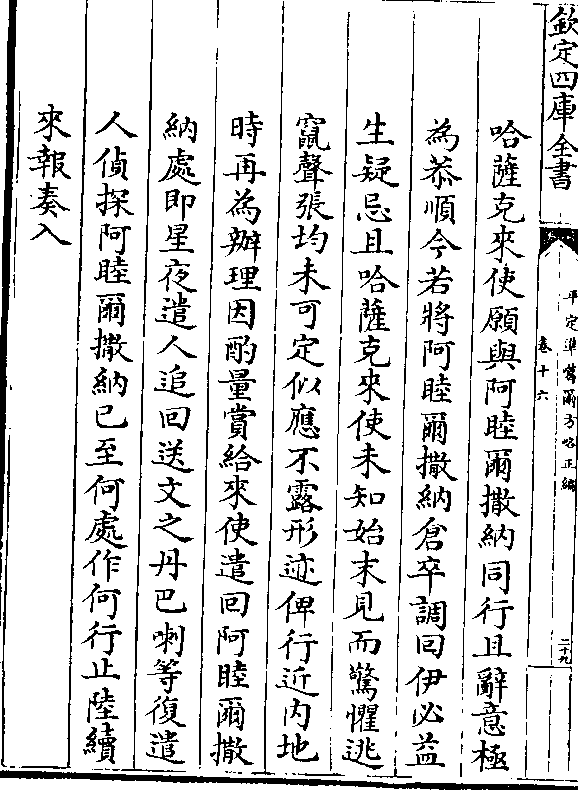 欽定四庫全書
平定準噶爾方略正編
卷十六
二十九
哈薩克來使願與阿睦爾撒納同行且辭意極
為恭順今若將阿睦爾撒納倉卒調回伊必益
生疑忌且哈薩克來使未知始末見而驚懼逃
竄聲張均未可定似應不露形迹俾行近內地
時再為辦理因酌量賞給來使遣回阿睦爾撒
納處即星夜遣人追回送文之丹巴喇等復遣
人偵探阿睦爾撒納已至何處作何行止陸續
來報奏入